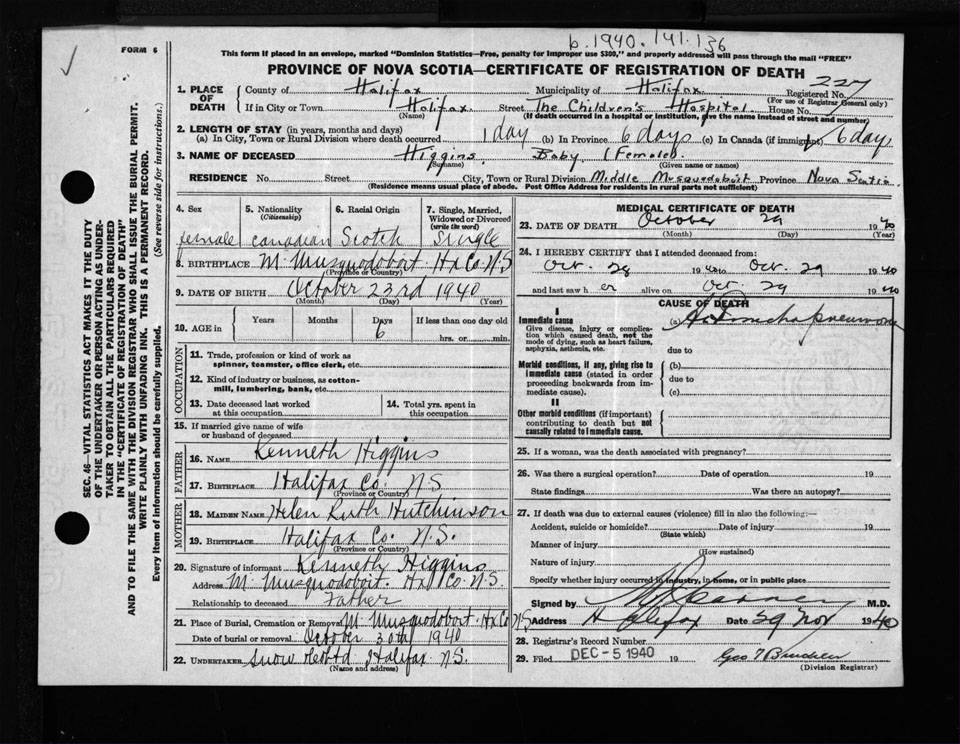 b. 1940. 141. 136
FORM 6
This form if placed in an envelope, marked "Dominion Statistics—Free, penalty for improper use $300," and properly addressed will pass through the mail "FREE"
PROVINCE OF NOVA SCOTIA—CERTIFICATE OF REGISTRATION OF DEATH
227
1. PLACE OF DEATH County of Halifax Municipality of Halifax Registered No.
(For use of Registrar General only)
If in City or Town Halifax Street The Children's Hospital House No.
(Name) (If death occurred in a hospital or institution, give the name instead of street and number)
2. LENGTH OF STAY (in years, months and days)
(a) In City, Town or Rural Division where death occurred 1 day (b) In Province 6 days (c) In Canada (if immigrant) 6 days
3. NAME OF DECEASED Higgins Baby (Female)
(Surname) (Given name or names)
RESIDENCE No. Street City, Town or Rural Division Middle Musquodoboit Province Nova Scotia
(Residence means usual place of abode. Post Office Address for residents in rural parts not sufficient)
4. Sex 5. Nationality (Citizenship) 6. Racial Origin 7. Single, Married, Widowed or Divorced (write the word)
female Canadian Scotch Single
8. BIRTHPLACE M. Musquodoboit Hx Co. N S
(Province or Country)
9. DATE OF BIRTH October 23rd 1940
(Month) (Day) (Year)
10. AGE in Years Months Days If less than one day old
6 hrs. or min.
OCCUPATION
11. Trade, profession or kind of work as spinner, teamster, office clerk, etc.
12. Kind of industry or business, as cotton-mill, lumbering, bank, etc.
13. Date deceased last worked at this occupation 14. Total yrs. spent in this occupation
15. If married give name of wife or husband of deceased
FATHER
16. NAME Kenneth Higgins
17. BIRTHPLACE Halifax Co. N S
(Province or Country)
MOTHER
18. MAIDEN NAME Helen Ruth Hutchinson
19. BIRTHPLACE Halifax Co. N.S.
(Province or Country)
20. Signature of informant Kenneth Higgins
Address M. Musquodoboit. Hx Co. N.S.
Relationship to deceased Father
21. Place of Burial, Cremation or Removal M. Musquodoboit. Hx Co NS
Date of burial or removal October 30th 1940
22. UNDERTAKER Snow Halifax N.S.
(Name and address)
MEDICAL CERTIFICATE OF DEATH
23. DATE OF DEATH October 29 1940
(Month) (Day) (Year)
24. I HEREBY CERTIFY that I attended deceased from:
Oct. 28 1940 to Oct. 29 1940
and last saw h er alive on Oct 29 1940
CAUSE OF DEATH
I
Immediate cause (a)
Give disease, injury or complication which caused death, not the mode of dying, such as heart failure, asphyxia, asthenia, etc.
due to
Morbid conditions, if any, giving rise to immediate cause (stated in order proceeding backwards from immediate cause).
(b)
due to
(c)
II
Other morbid conditions (if important) contributing to death but not causally related to immediate cause.
25. If a woman, was the death associated with pregnancy?
26. Was there a surgical operation? Date of operation 19
State findings Was there an autopsy?
27. If death was due to external causes (violence) fill in also the following:—
Accident, suicide or homicide? Date of injury 19
(State which)
Manner of injury
(How sustained)
Nature of injury
Specify whether injury occurred in industry, in home, or in public place
Signed by M.D.
Address Halifax Date 29 Nov 1940
28. Registrar's Record Number
29. Filed DEC - 5 1940 19
(Division Registrar)
SEC. 46—VITAL STATISTICS ACT MAKES IT THE DUTY
OF THE UNDERTAKER OR PERSON ACTING AS UNDER-
TAKER TO OBTAIN ALL THE PARTICULARS REQUIRED
IN THE "CERTIFICATE OF REGISTRATION OF DEATH"
AND TO FILE THE SAME WITH THE DIVISION REGISTRAR WHO SHALL ISSUE THE BURIAL PERMIT.
WRITE PLAINLY WITH UNFADING INK. THIS IS A PERMANENT RECORD.
Every item of information should be carefully supplied. (See reverse side for instructions.)